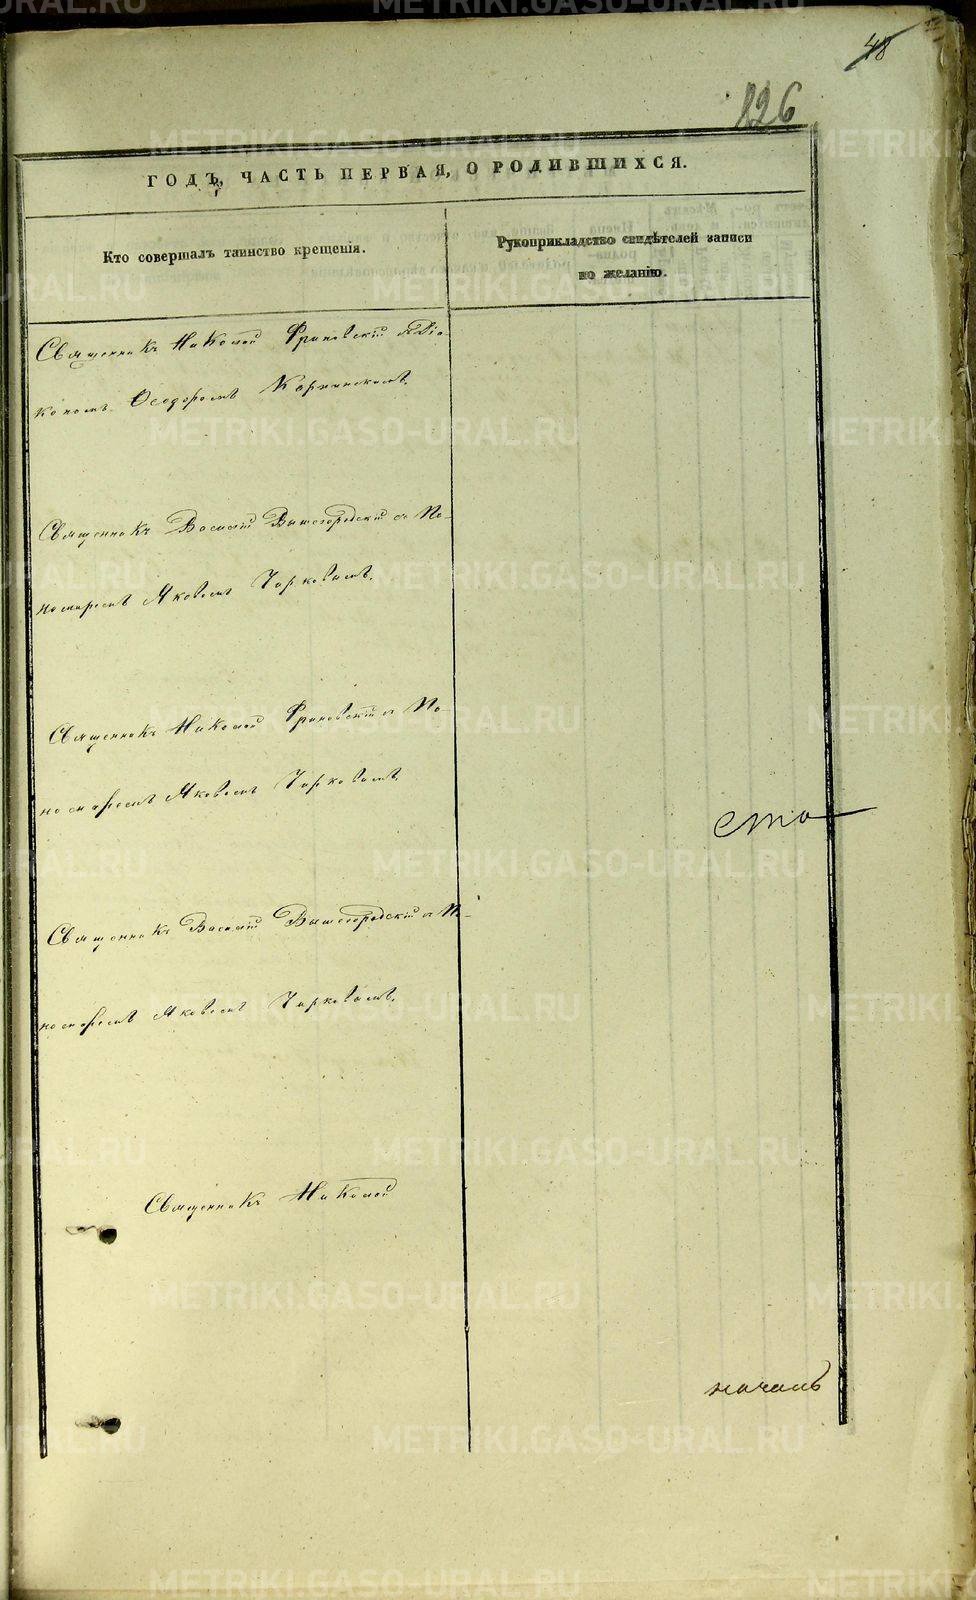 48
826
ГОДЪ, ЧАСТЬ ПЕРВАЯ, О РОДИВШИХСЯ.
Кто совершалъ таинство крещенія.
Рукоприкладство свидѣтелей записи
по желанію.
Священникъ Николай Франовскій съ Діа-
кономъ Ѳеодоромъ
Священникъ Василій Вышегородскій съ По-
номаремъ Яковомъ Чирковымъ.
Священникъ Николай Франовскій съ По-
номаремъ Яковомъ Чирковымъ.
сто
Священникъ Василій Вышегородскій съ По-
номаремъ Яковомъ Чирковымъ.
Священникъ Николай
METRIKI.GASO-URAL.RU